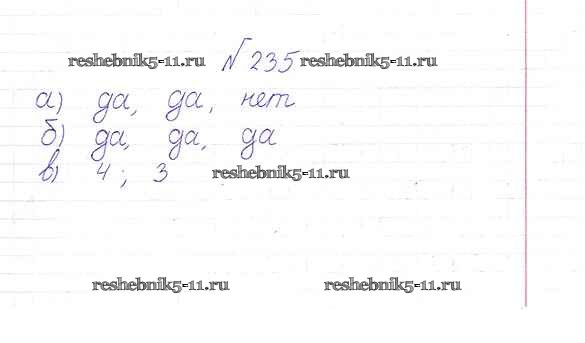 reshebnik5-11.ru №235 reshebnik5-11.ru
а) да, да, нет
б) да, да, да
в) 4; 3 reshebnik5-11.ru
reshebnik5-11.ru reshebnik5-11.ru